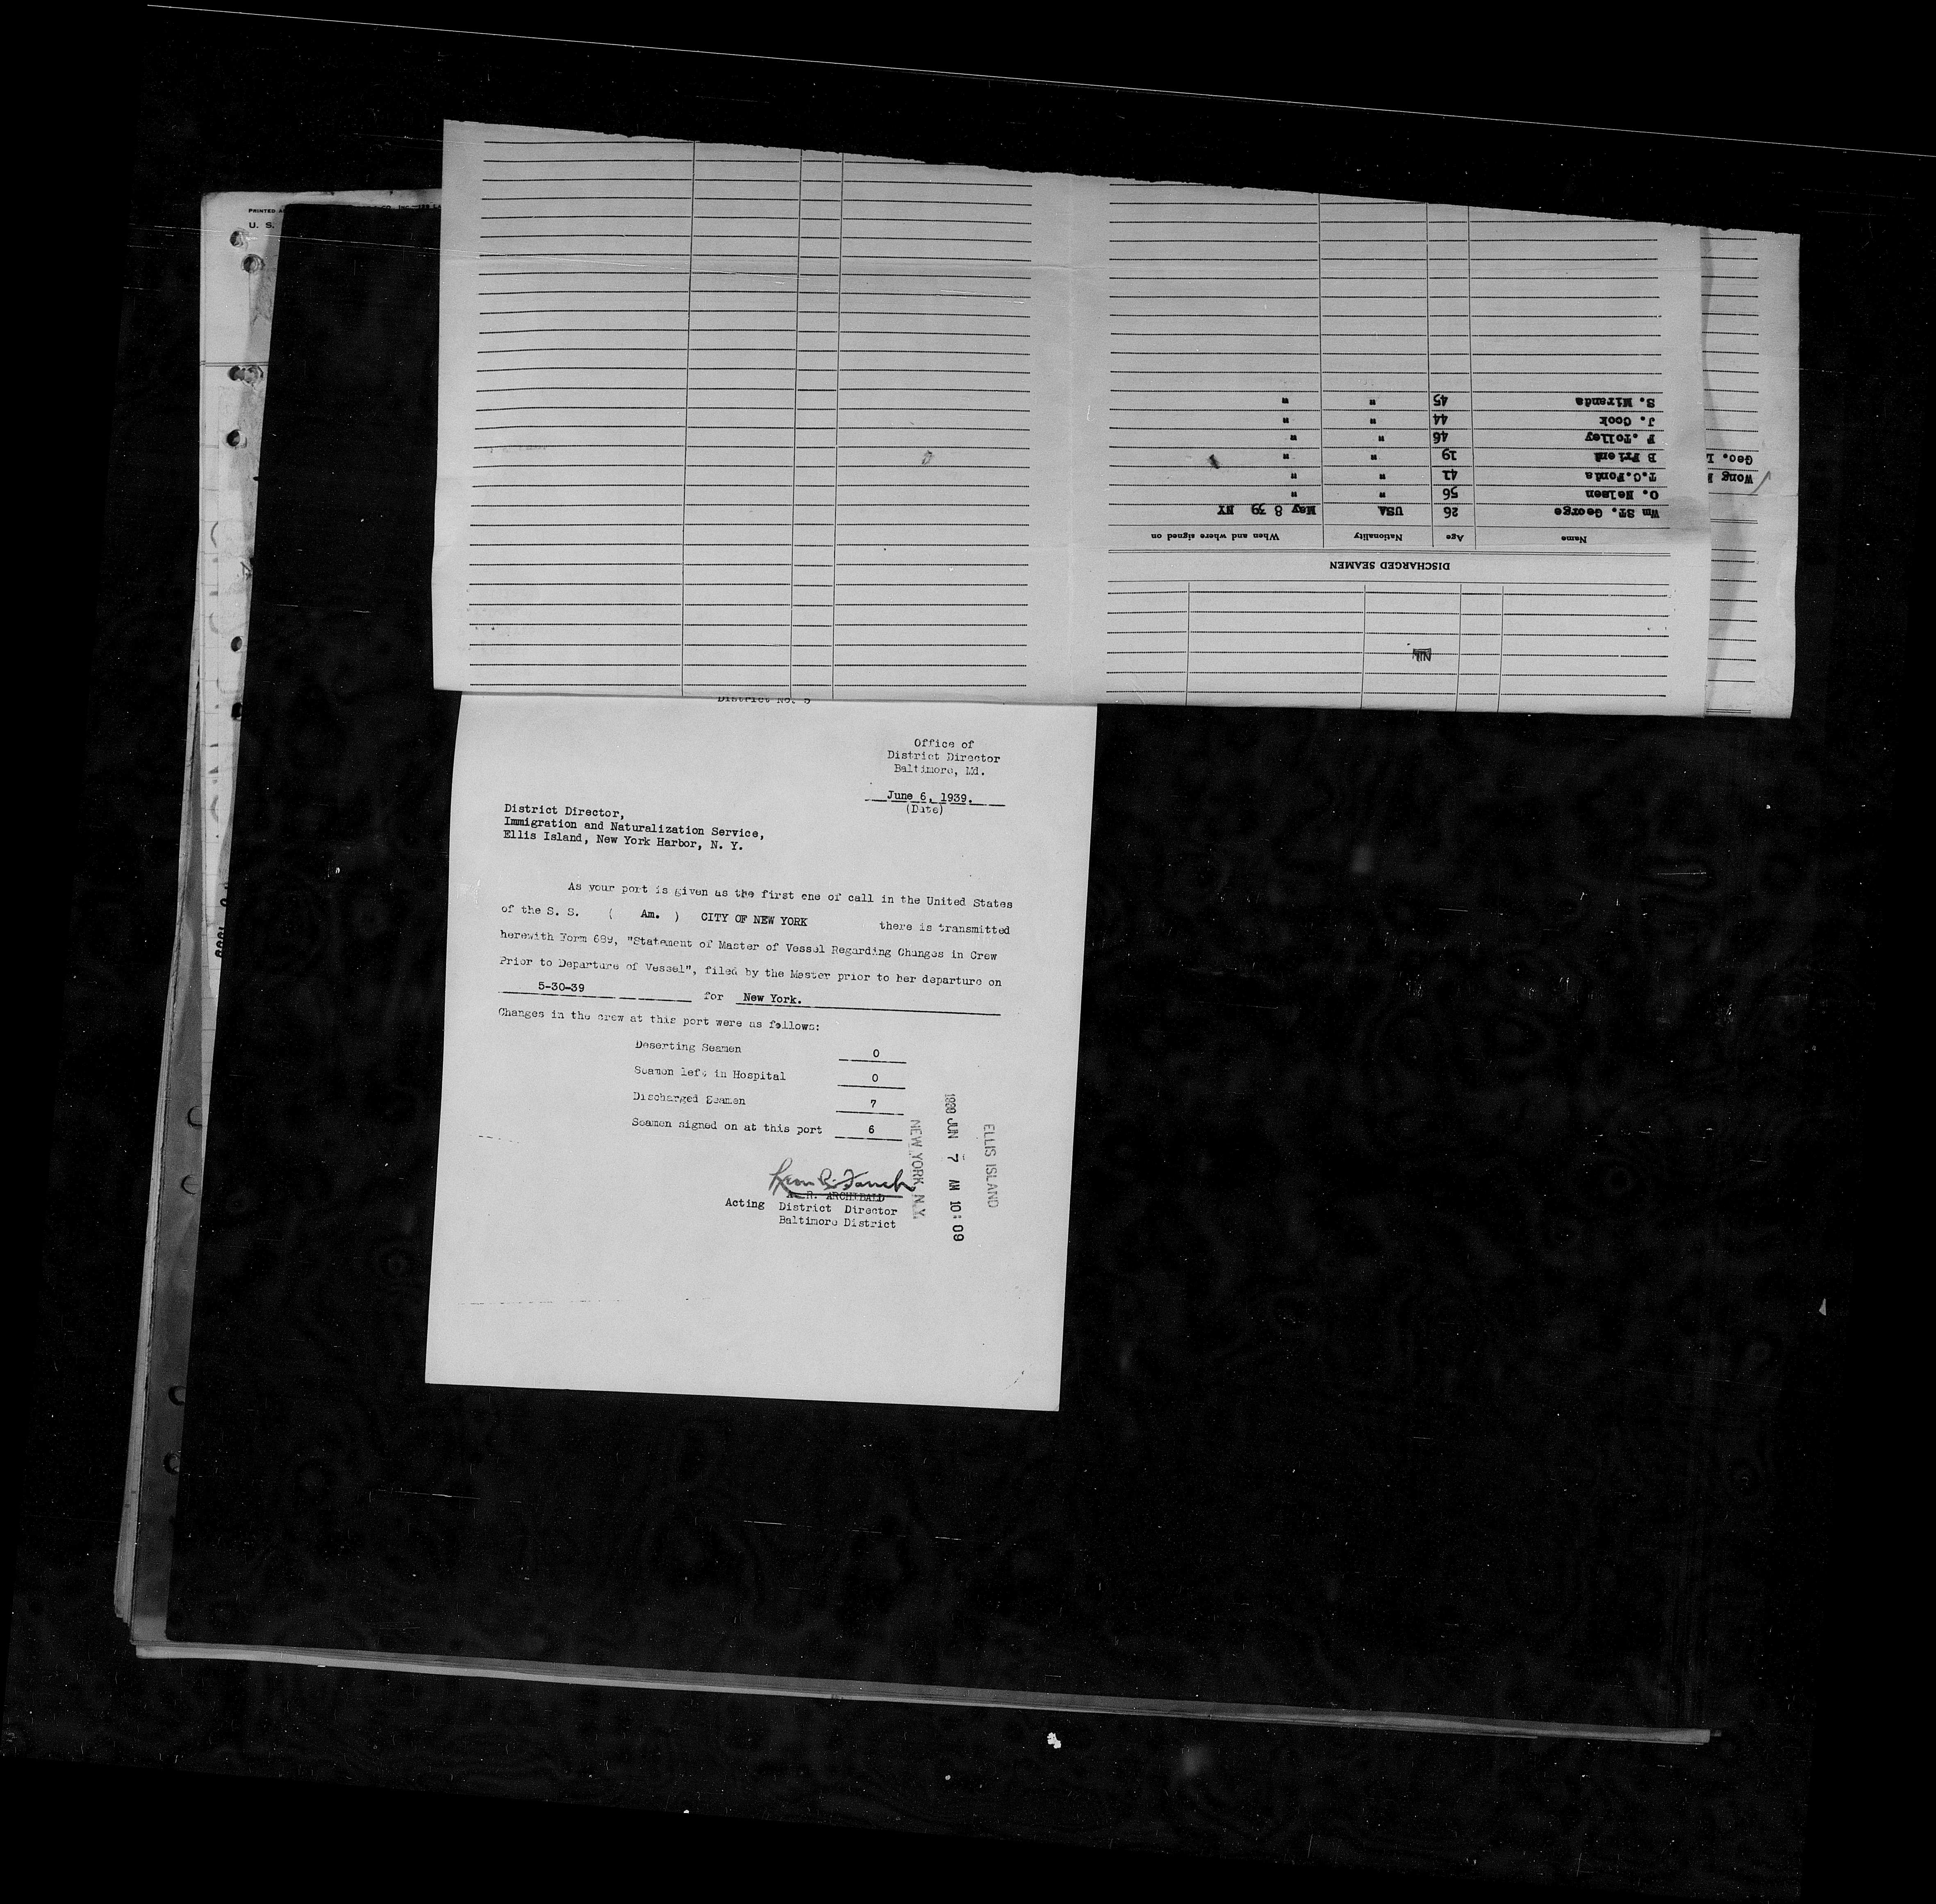 PRINTED
U. S.
DISCHARGED SEAMEN
Name Age Nationality When and where signed on
Wm ST. George 26 USA May 8 39 NY
O. Nelsen 56 " "
T.C.Fonks 41 " "
B Frienk 19 " "
F .Tolley 46 " "
J. Cook 44 " "
S. Miranda 45 " "
NIL
Wong
Geo.
District No. 5
Office of
District Director
Baltimore, Md.
June 6, 1939.
(Date)
District Director,
Immigration and Naturalization Service,
Ellis Island, New York Harbor, N. Y.
As your port is given as the first one of call in the United States
of the S. S. ( Am. ) CITY OF NEW YORK there is transmitted
herewith Form 689, "Statement of Master of Vessel Regarding Changes in Crew
Prior to Departure of Vessel", filed by the Master prior to her departure on
5-30-39 for New York.
Changes in the crew at this port were as follows:
Deserting Seamen 0
Seamen left in Hospital 0
Discharged Seamen 7
Seamen signed on at this port 6
A. R. ARCHIBALD
Acting District Director
Baltimore District
ELLIS ISLAND
1939 JUN 7 AM 10:09
NEW YORK, N.Y.